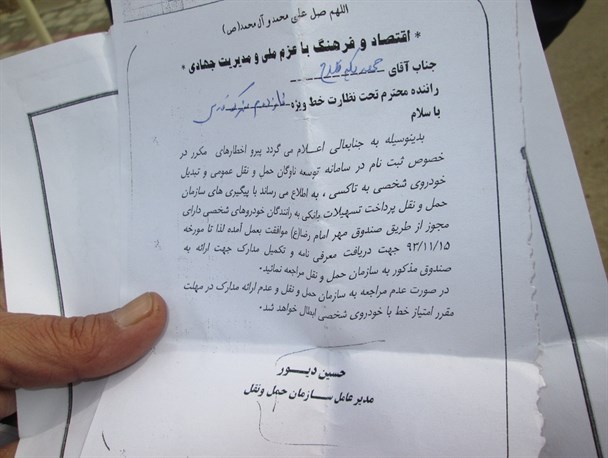 اللهم صل علی محمد و آل محمد(ص)
* اقتصاد و فرهنگ با عزم ملی و مدیریت جهادی *
جناب آقای
راننده محترم تحت نظارت خط ویژه
با سلام
بدینوسیله به جنابعالی اعلام می گردد پیرو اخطارهای مکرر در
خصوص ثبت نام در سامانه توسعه ناوگان حمل و نقل عمومی و تبدیل
خودروی شخصی به تاکسی ، به اطلاع می رساند با پیگیری های سازمان
حمل و نقل پرداخت تسهیلات بانکی به رانندگان خودروهای شخصی دارای
مجوز از طریق صندوق مهر امام رضا(ع) موافقت بعمل آمده لذا تا مورخه
۹۳/۱۱/۱۵ جهت دریافت معرفی نامه و تکمیل مدارک جهت ارائه به
صندوق مذکور به سازمان حمل و نقل مراجعه نمائید.
در صورت عدم مراجعه به سازمان حمل و نقل و عدم ارائه مدارک در مهلت
مقرر امتیاز خط با خودروی شخصی ابطال خواهد شد.
حسین دیور
مدیرعامل سازمان حمل ونقل